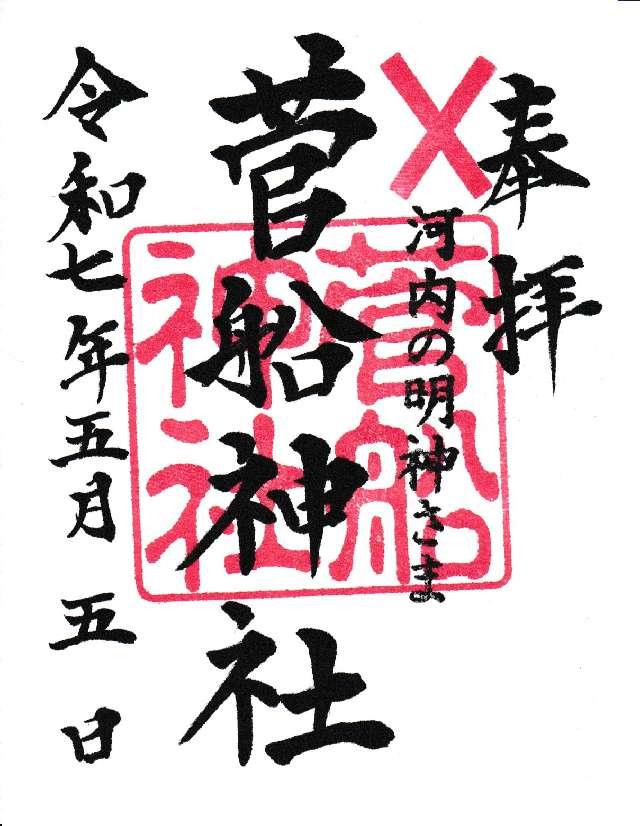 奉拝
河内の明神さま
菅船神社
菅船神社
令和七年五月五日